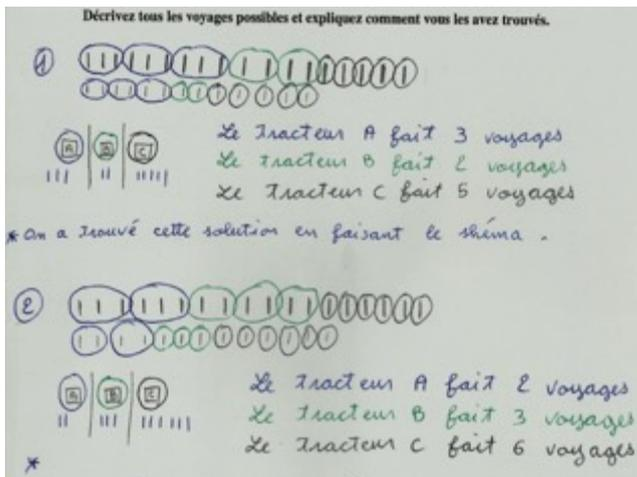 Décrivez tous les voyages possibles et expliquez comment vous les avez trouvés.
1
A B C
Le Tracteur A fait 3 voyages
Le Tracteur B fait 2 voyages
Le Tracteur C fait 5 voyages
* On a trouvé cette solution en faisant le shéma.
2
A B C
Le Tracteur A fait 2 voyages
Le Tracteur B fait 3 voyages
Le Tracteur C fait 6 voyages
*